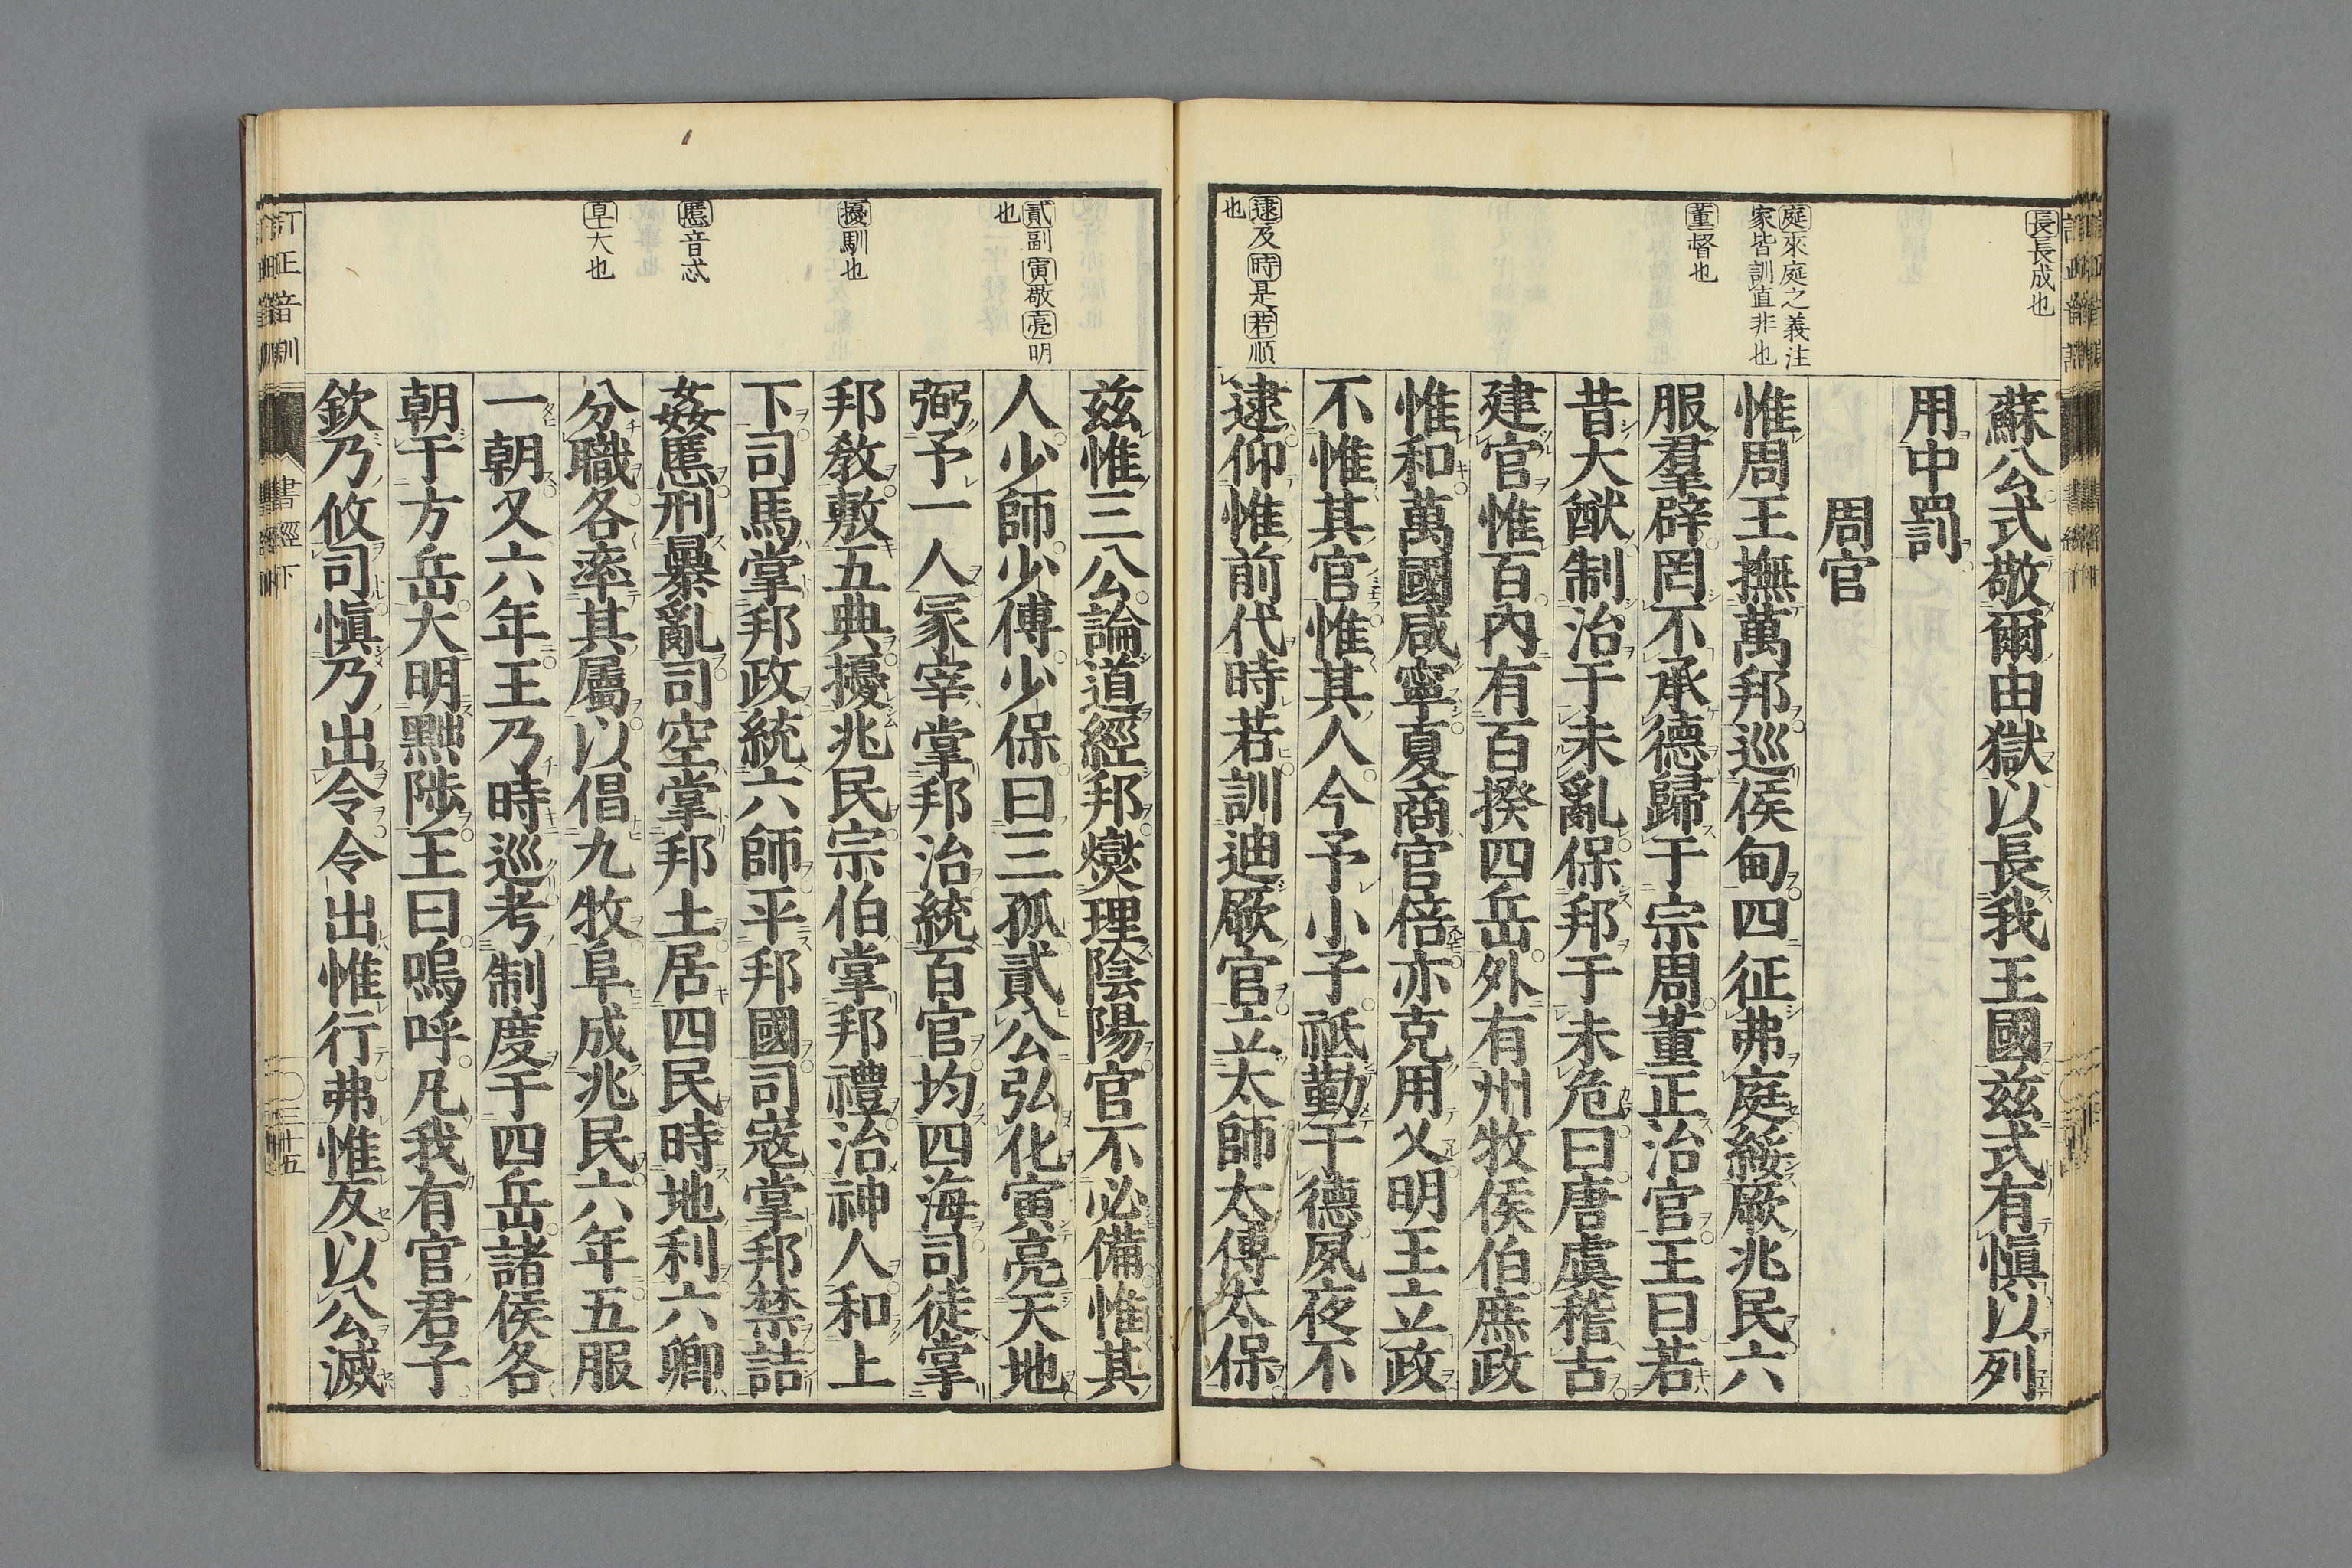 長長成也
庭來庭之義注
家皆訓直非也
董督也
逮及時是若順
也
蘇公式敬爾由獄以長我王國茲式有愼以列
用中罰
周官
惟周王撫萬邦巡侯甸四征弗庭綏厥兆民六
服羣辟罔不承德歸于宗周董正治官王曰若
昔大猷制治于未亂保邦于未危曰唐虞稽古
建官惟百內有百揆四岳外有州牧侯伯庶政
惟和萬國咸寧夏商官倍亦克用乂明王立政
不惟其官惟其人今予小子祗勤于德夙夜不
逮仰惟前代時若訓迪厥官立太師太傅太保
貳副寅敬亮明
也
擾馴也
慝音忒
阜大也
茲惟三公論道經邦燮理陰陽官不必備惟其
人少師少傅少保曰三孤貳公弘化寅亮天地
弼予一人冢宰掌邦治統百官均四海司徒掌
邦敎敷五典擾兆民宗伯掌邦禮治神人和上
下司馬掌邦政統六師平邦國司寇掌邦禁詰
姦慝刑暴亂司空掌邦土居四民時地利六卿
分職各率其屬以倡九牧阜成兆民六年五服
一朝又六年王乃時巡考制度于四岳諸侯各
朝于方岳大明黜陟王曰嗚呼凡我有官君子
欽乃攸司愼乃出令令出惟行弗惟反以公滅
訂正音訓
書經下
三十五